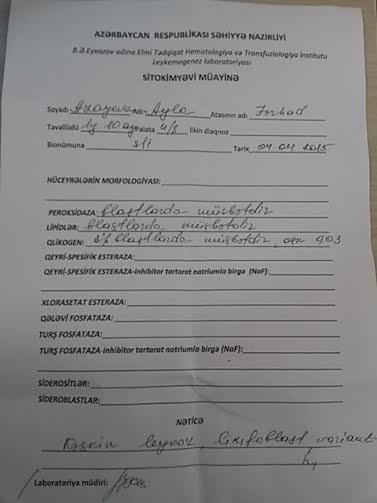 AZƏRBAYCAN RESPUBLİKASI SƏHİYYƏ NAZİRLİYİ
B.Ə.Eyvazov adına Elmi Tədqiqat Hematologiya va Transfuziologiya institutu
Leykemogenez laboratoriyası
SİTOKİMYƏVİ MÜAYİNƏ
Soyadı Adı Ayla Atasının adı Fərhad
Təvəllüdü 1y 10 ay Palata a/ş İlkin diaqnoz
Bionümunə sli Tarix 04 04 2015
HÜCEYRƏLƏRİN MORFOLOGİYASI:
PEROKSİDAZA: blastlarda müsbətdir
LİPİDLƏR: blastlarda müsbətdir
QLİKOGEN: blastlarda müsbətdir,
QEYRİ-SPESİFİK ESTERAZA:
QEYRİ-SPESİFİK ESTERAZA-inhibitor tartarat natriumla birgə (NaF):
XLORASETAT ESTERAZA:
QƏLƏVİ FOSFATAZA:
TURŞ FOSFATAZA:
TURŞ FOSFATAZA-inhibitor tartarat natriumla birgə (NaF):
SİDEROSİTLƏR:
SİDEROBLASTLAR:
NƏTİCƏ
Kəskin leykoz, limfoblast variant
L1
Laboratoriya müdiri: